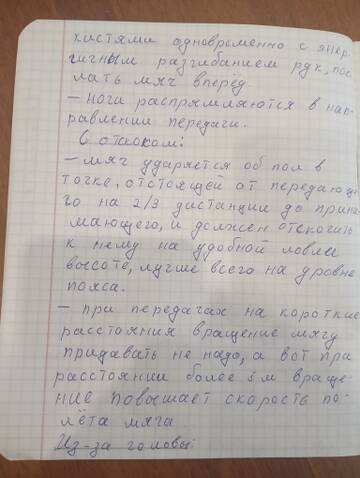 кистями одновременно с энер-
гичным разгибанием рук, пос-
лать мяч вперёд
– ноги распрямляются в нап-
равлении передачи.
С отскоком:
– мяч ударяется об пол в
точке, отстоящей от передающе-
го на 2/3 дистанции до прини-
мающего, и должен отскочить
к нему на удобной ловли
высоте, лучше всего на уровне
пояса.
– при передачах на короткие
расстояния вращение мячу
придавать не надо, а вот при
расстоянии более 5м враще-
ние повышает скорость по-
лёта мяча
Из-за головы: